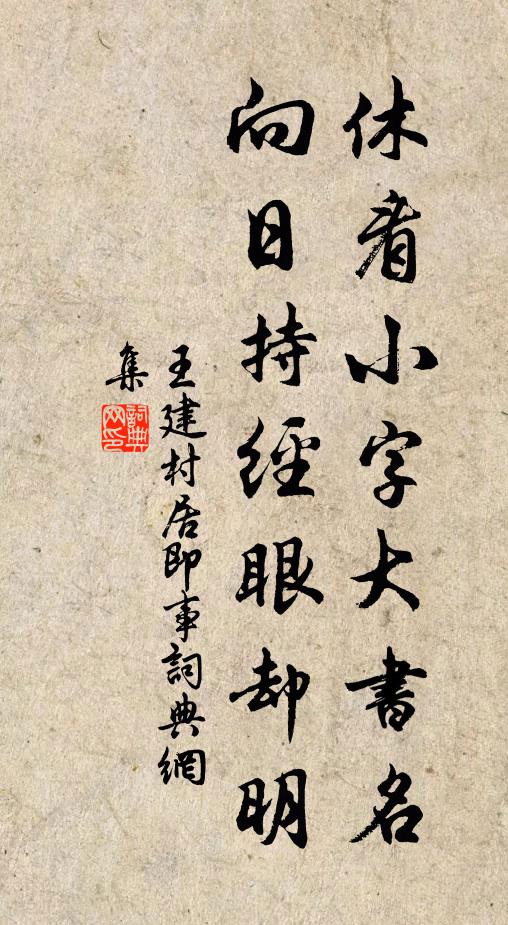 休看小字大書名
向日持經眼却明
王建村居即事詞典網
集
詞典
網印